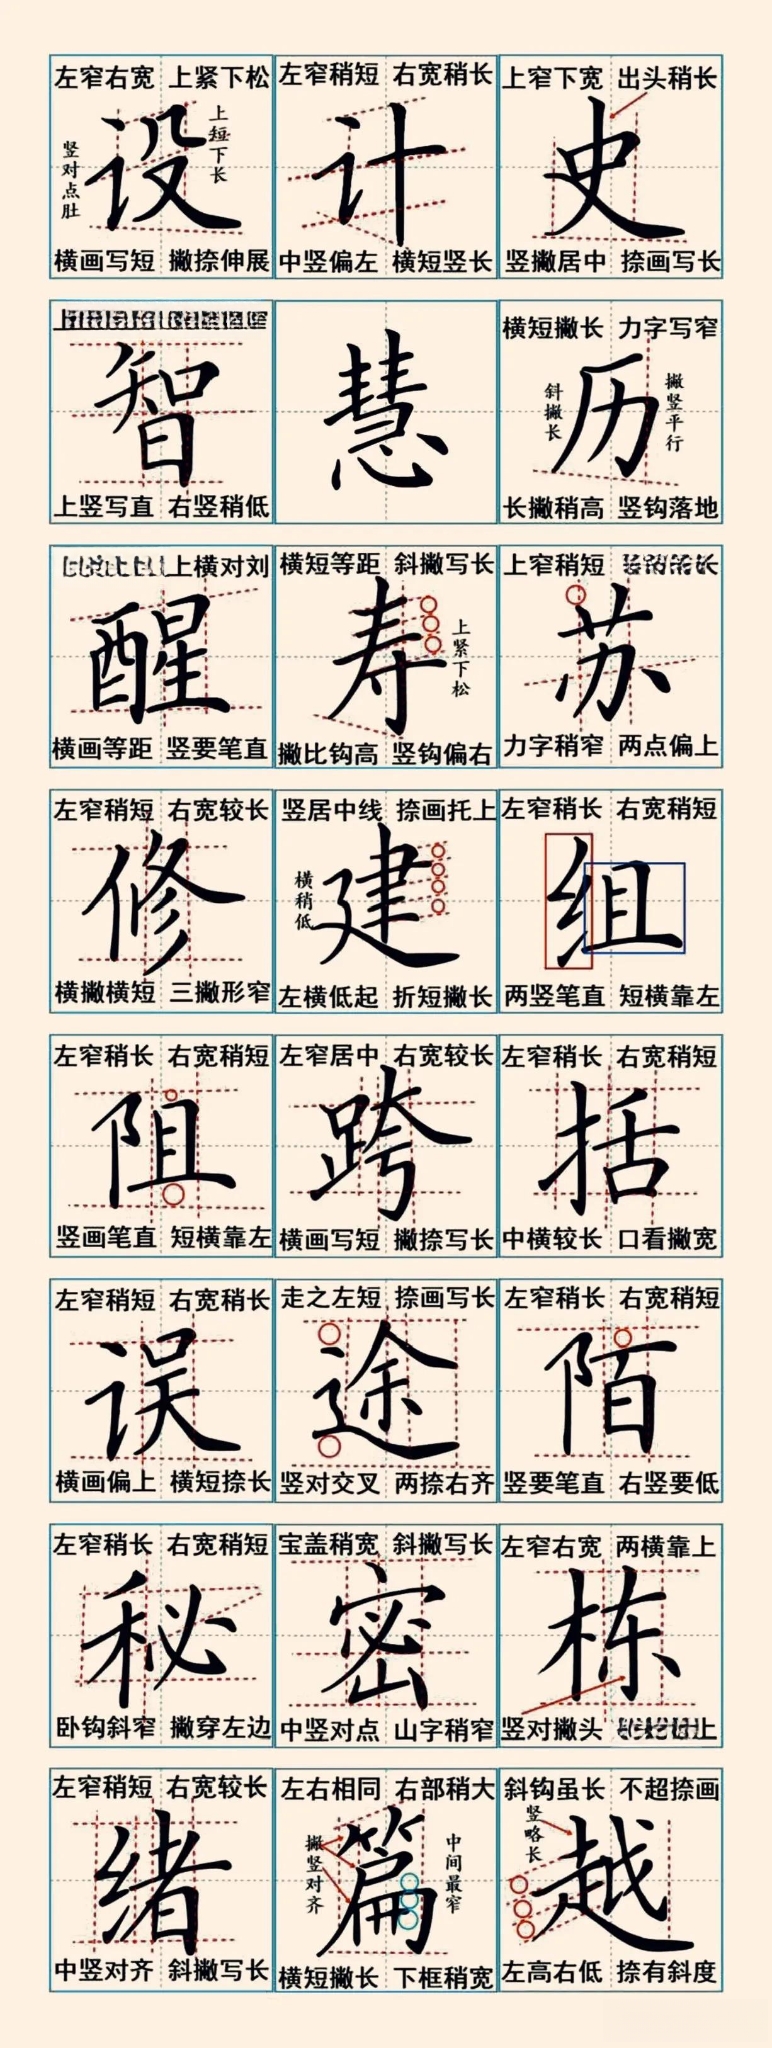 左窄右宽 上紧下松
设
上短下长
竖对点肚
横画写短 撇捺伸展
左窄稍短 右宽稍长
计
中竖偏左 横短竖长
上窄下宽 出头稍长
史
竖撇居中 捺画写长
智
上竖写直 右竖稍低
慧
横短撇长 力字写窄
历
斜撇长
撇竖平行
长撇稍高 竖钩落地
上横对刘
醒
横画等距 竖要笔直
横短等距 斜撇写长
寿
上紧下松
撇比钩高 竖钩偏右
上窄稍短
苏
力字稍窄 两点偏上
左窄稍短 右宽较长
修
横撇横短 三撇形窄
竖居中线 捺画托上
建
横稍低
左横低起 折短撇长
左窄稍长 右宽稍短
组
两竖笔直 短横靠左
左窄稍长 右宽稍短
阻
竖画笔直 短横靠左
左窄居中 右宽较长
跨
横画写短 撇捺写长
左窄稍长 右宽稍短
括
中横较长 口看撇宽
左窄稍短 右宽稍长
误
横画偏上 横短捺长
走之左短 捺画写长
途
竖对交叉 两捺右齐
左窄稍长 右宽稍短
陌
竖要笔直 右竖要低
左窄稍长 右宽稍短
秘
卧钩斜窄 撇穿左边
宝盖稍宽 斜撇写长
密
中竖对点 山字稍窄
左窄右宽 两横靠上
栋
竖对撇头
左窄稍短 右宽较长
绪
中竖对齐 斜撇写长
左右相同 右部稍大
篇
撇竖对齐
中间最窄
横短撇长 下框稍宽
斜钩虽长 不超捺画
竖略长
越
左高右低 捺有斜度